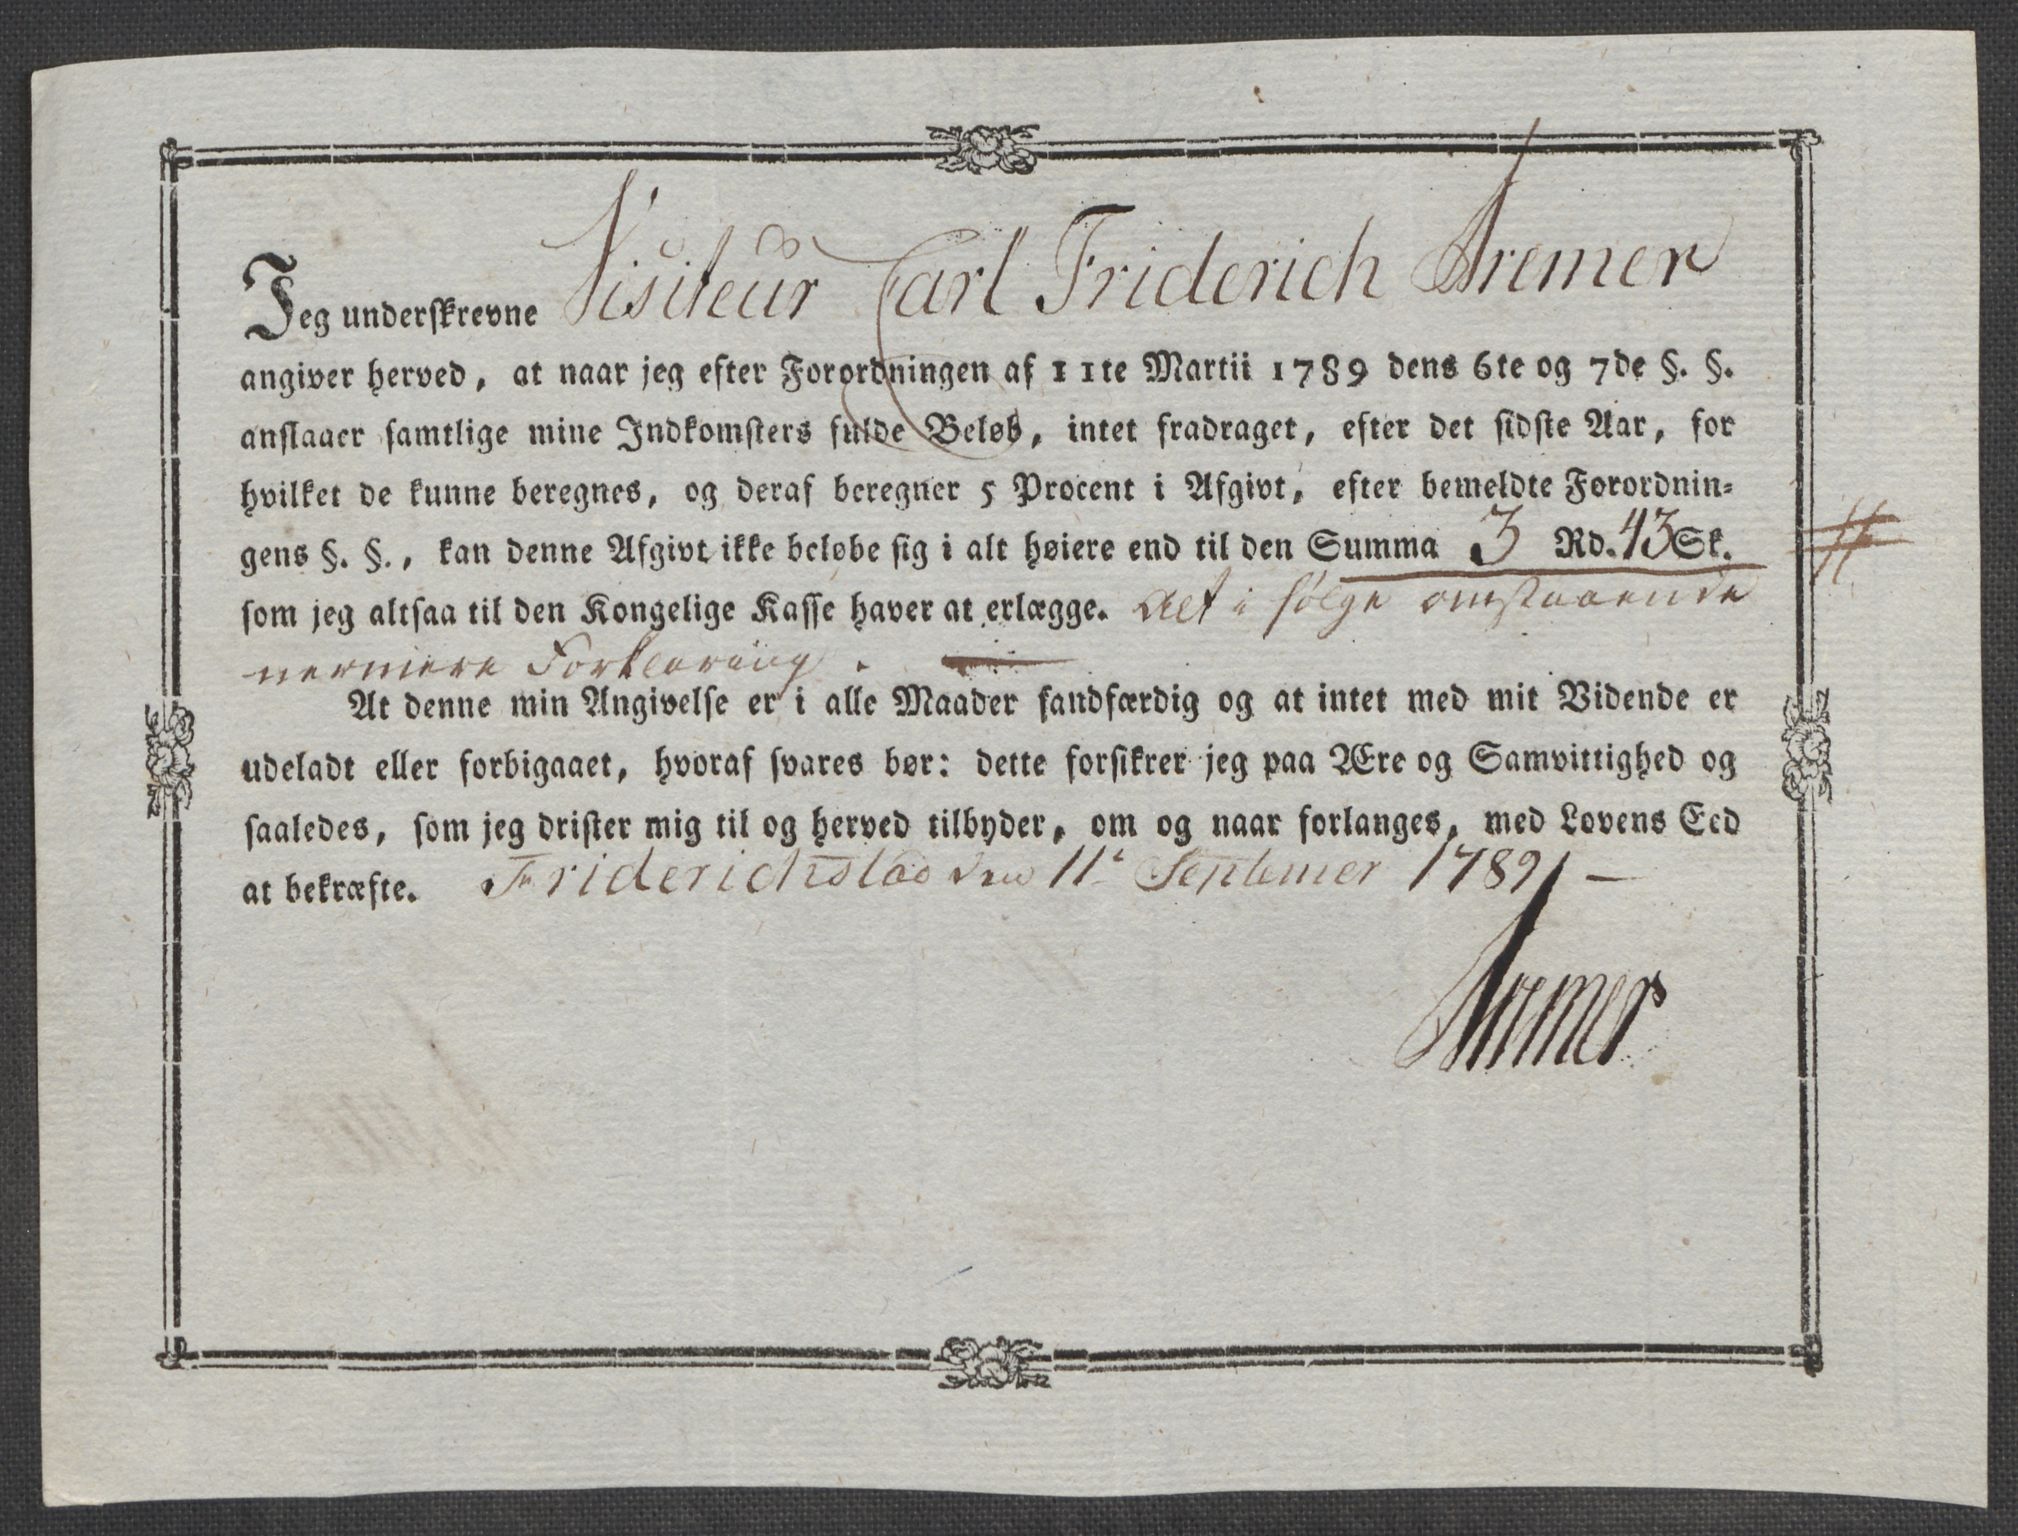 Jeg underskrevne Visiteur Carl Friderich Aremer
angiver herved, at naar jeg efter Forordningen af 11te Martii 1789 dens 6te og 7de §. §.
anslaaer samtlige mine Indkomsters fulde Beløb, intet fradraget, efter det sidste Aar, for
hvilket de kunne beregnes, og deraf beregner 5 Procent i Afgivt, efter bemeldte Forordnin-
gens §. §., kan denne Afgivt ikke beløbe sig i alt høiere end til den Summa 3 Rd. 43 Sk.
som jeg altsaa til den Kongelige Kasse haver at erlægge. Alt i følge omstaaende
nermere Forklaring.
At denne min Angivelse er i alle Maader sandfærdig og at intet med mit Vidende er
udeladt eller forbigaaet, hvoraf svares bør: dette forsikrer jeg paa Ære og Samvittighed og
saaledes, som jeg drister mig til og herved tilbyder, om og naar forlanges, med Lovens Eed
at bekræfte. Friderichstad den 11t September 1789
Aremer